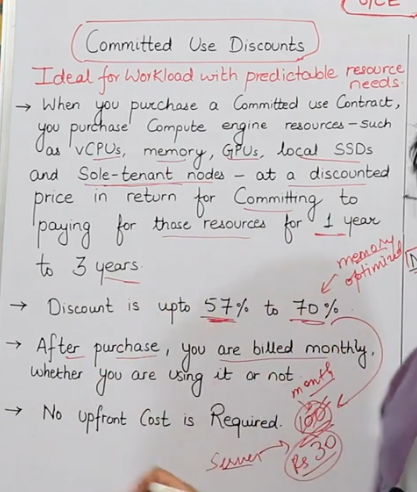 Committed Use Discounts
Ideal for Workload with predictable resource
needs.
→ When you purchase a Committed use Contract,
you purchase Compute engine resources - such
as vCPUs, memory, GPUs, local SSDs
and Sole-tenant nodes - at a discounted
price in return for Committing to
paying for those resources for 1 year
to 3 years.
memory
optimized
→ Discount is upto 57% to 70%.
→ After purchase, you are billed monthly,
whether you are using it or not.
month
→ No upfront Cost is Required.
100
Server
Rs 30